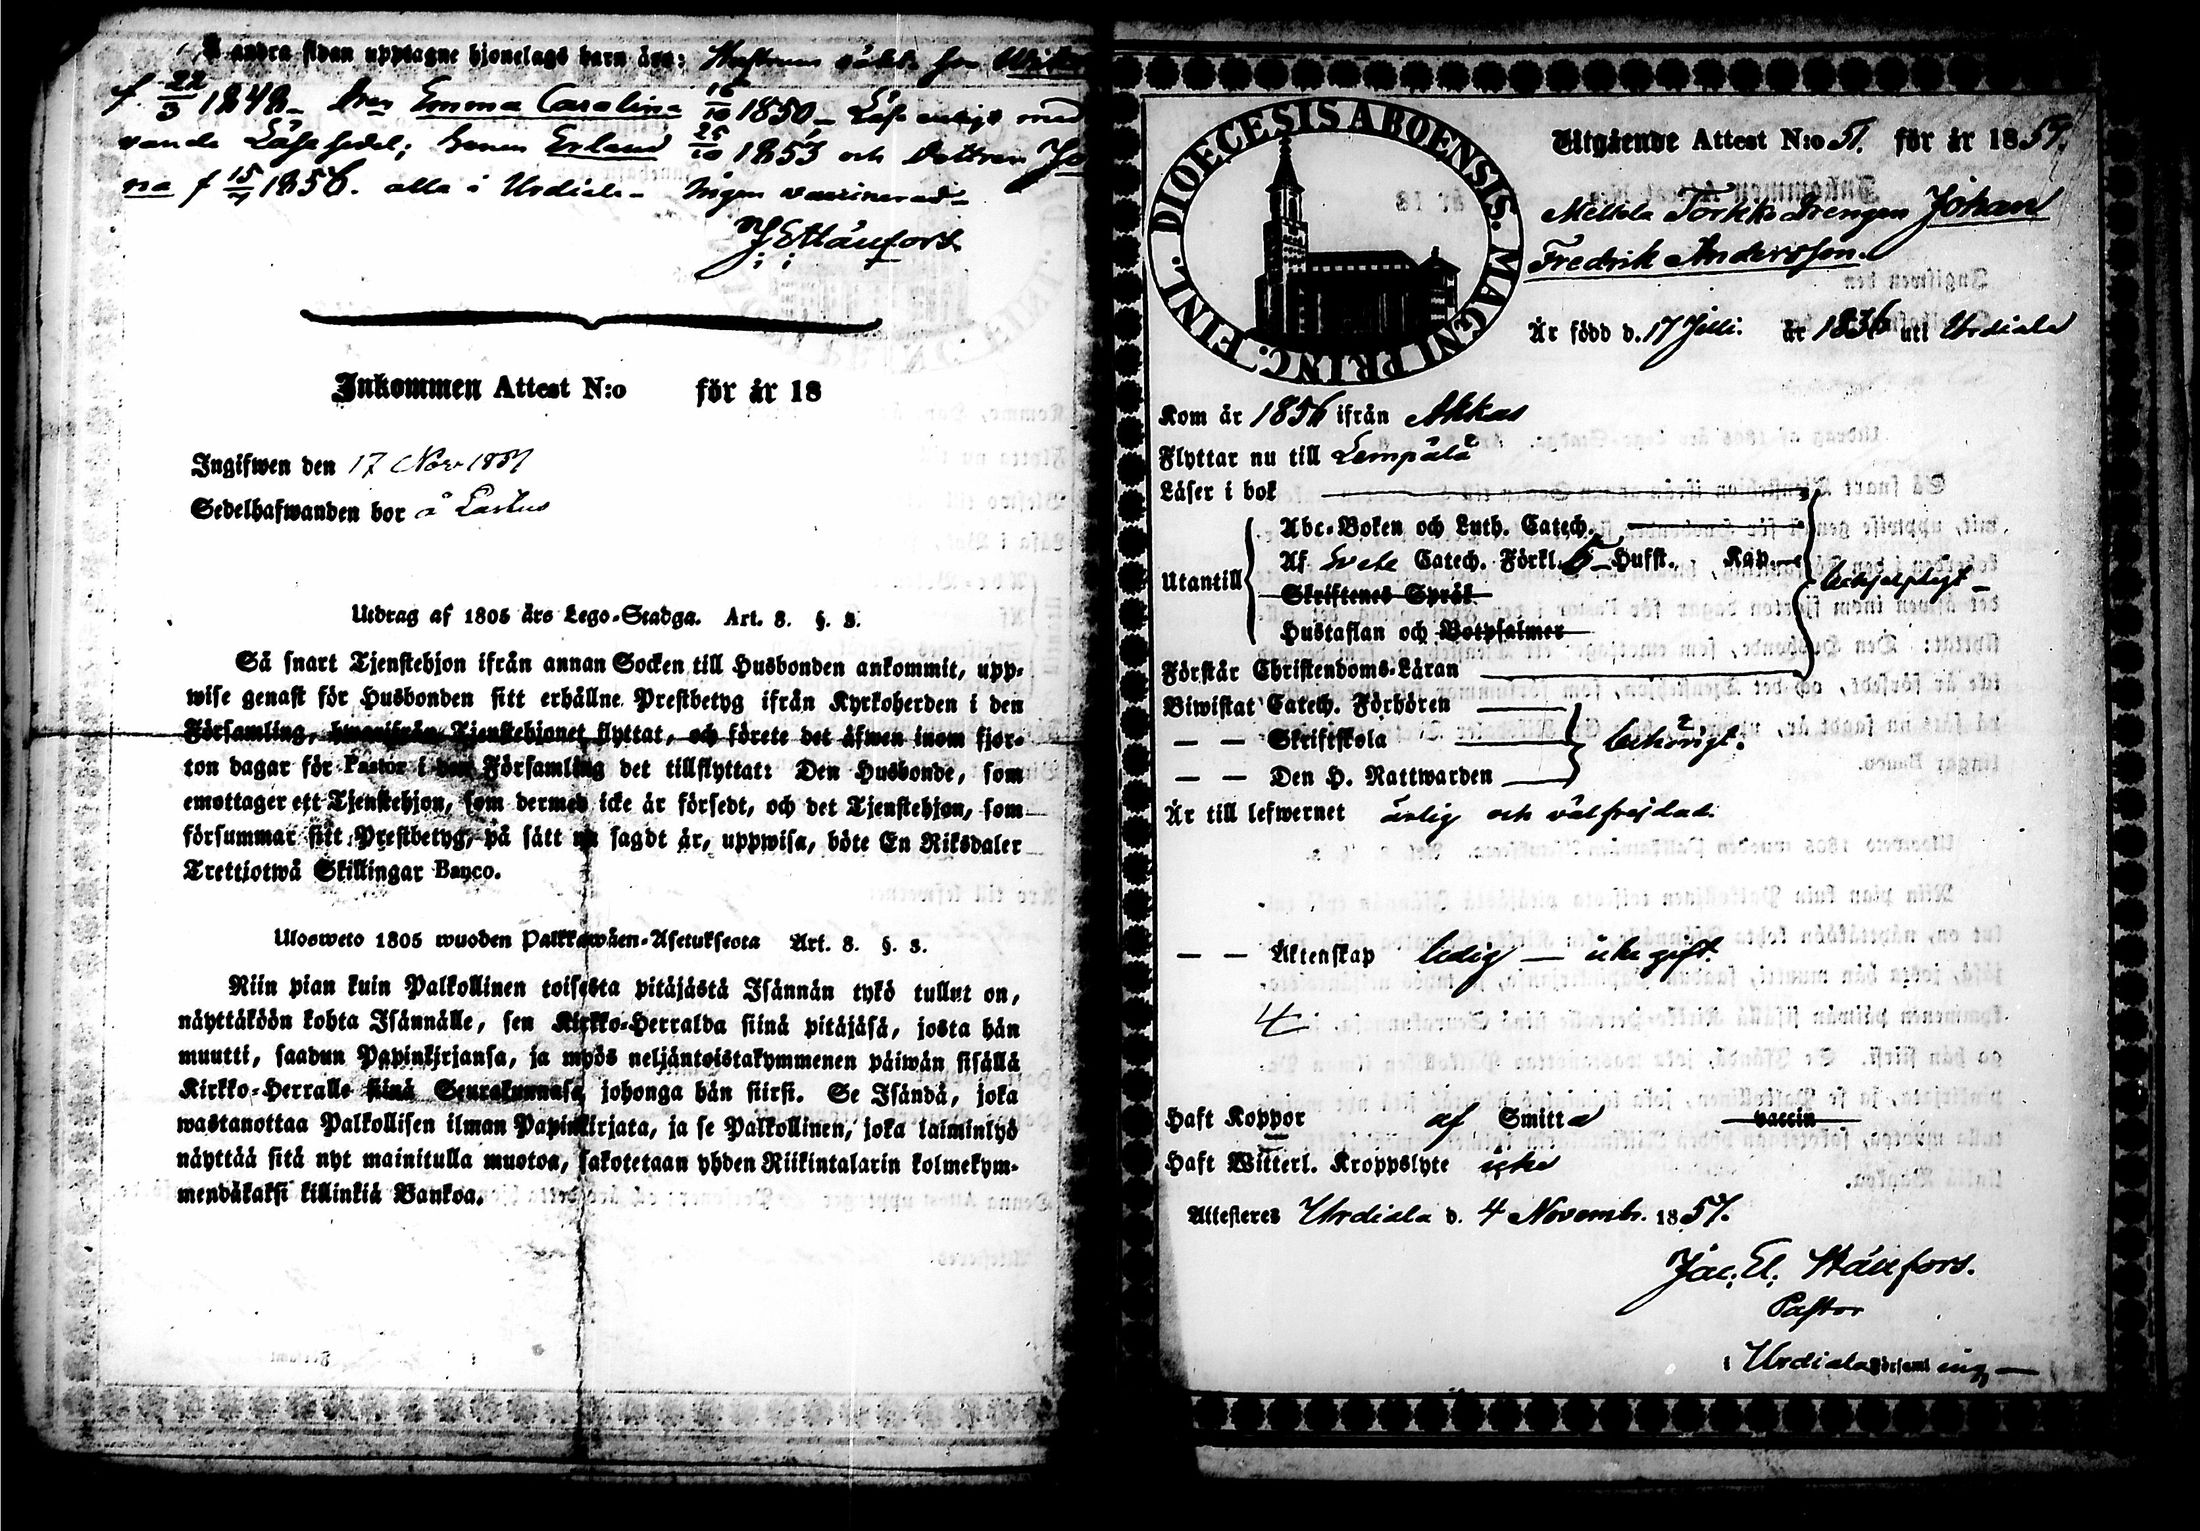 å andra sidan upptagne hjonelags barn äro: Hustruns oäkta son
f. 22/3 1848 – Dras Emma Carolina 16/10 1850 – Läse enligt med
vande Läsesedel; Sonen Erland 25/10 1853 och Dottren Jo
na f 15/ 1856. alla i Urdiala – Ingen vaccinerad –
J E Stäufors.
Inkommen Attest N:o för år 18
Ingifwen den 17 Nov 1857
Sedelhafwanden bor å
Utdrag af 1805 års Lego-Stadga. Art. 8. §. 3.
Så snart Tjenstehjon ifrån annan Socken till Husbonden ankommit, upp-
wise genast för Husbonden sitt erhållne Prestbetyg ifrån Kyrkoherden i den
Församling, hwarifrån Tjenstehjonet flyttat, och förete det äfwen inom fjor-
ton dagar för Pastor i den Församling det tillflyttat: Den Husbonde, som
emottager ett Tjenstehjon, som dermed icke är försedt, och det Tjenstehjon, som
försummar sitt Prestbetyg, på sätt nu sagdt är, uppwisa, böte En Riksdaler
Trettiotwå Skillingar Banco.
Ulosweto 1805 wuoden Palkkawäen-Asetuksesta Art. 8. §. 3.
Niin pian kuin Palkollinen toisesta pitäjästä Isännän tykö tullut on,
näyttäköön kohta Isännälle, sen Kirkko-Herralda siinä pitäjäsä, josta hän
muutti, saadun Papinkirjansa, ja myös neljäntoistakymmenen päiwän sisällä
Kirkko-Herralle siinä Seurakunnasa, johonga hän siirsi. Se Isändä, joka
wastanottaa Palkollisen ilman Papinkirjata, ja se Palkollinen, joka laiminlyö
näyttää sitä nyt mainitulla muotoa, sakotetaan yhden Riikintalarin kolmekym-
mendäkaksi killinkiä Bankoa.
DIOECESIS ABOENSIS. MAGNI PRINC. FINL.
Utgående Attest N:o 57. för år 1857.
Mellola Torkko Drengen Johan
Fredrik Andersson.
Är född d. 17 Julii. år 1836 uti Urdiala
Kom år 1856 ifrån Akkas
Flyttar nu till Lempälä
Läser i bok
Abc-Boken och Luth. Catech.
Af Svebe Catech. Förkl. 5 Hufst. Kap.
Utantill
behjelpligt –
Skriftenes Språk
Hustaflan och Botpsalmer
Förstår Christendoms-Läran
Biwistat Catech. Förhören
— — Skriftskola
behörigt.
— — Den H. Nattwarden
Är till lefwernet ärlig och välfrejdad.
— — Äktenskap ledig — icke gift.
4
Haft Koppor af Smitta vaccin
Haft Witterl. Kroppslyte icke
Attesteres Urdiala d. 4 Novembr. 1857.
Jac. El. Stäufors.
Pastor
i Urdiala Församling —